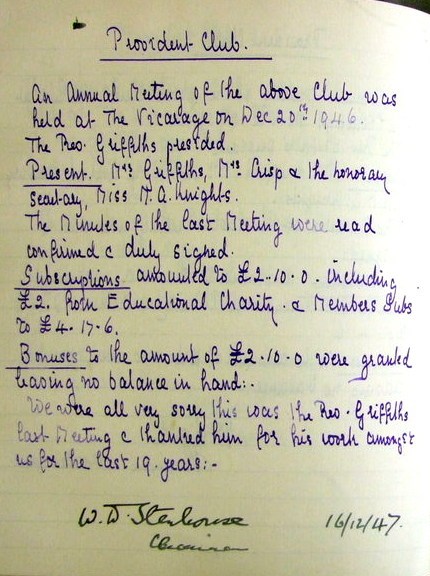 Provident Club.
An Annual Meeting of the above Club was
held at The Vicarage on Dec 20th 1946.
The Rev. Griffiths presided.
Present. Mrs Griffiths, Mrs Crisp & the honorary
secretary, Miss M.A. Knights.
The Minutes of the last Meeting were read
confirmed & duly signed.
Subscriptions amounted to £2-10-0. including
£2. from Educational Charity. & Members Subs
to £4-17-6.
Bonuses to the amount of £2-10-0 were granted
leaving no balance in hand:-.
We were all very sorry this was the Rev. Griffiths
last Meeting & thanked him for his work amongst
us for the last 19 years:-
W. D. Stenhouse 16/12/47.
Chairman